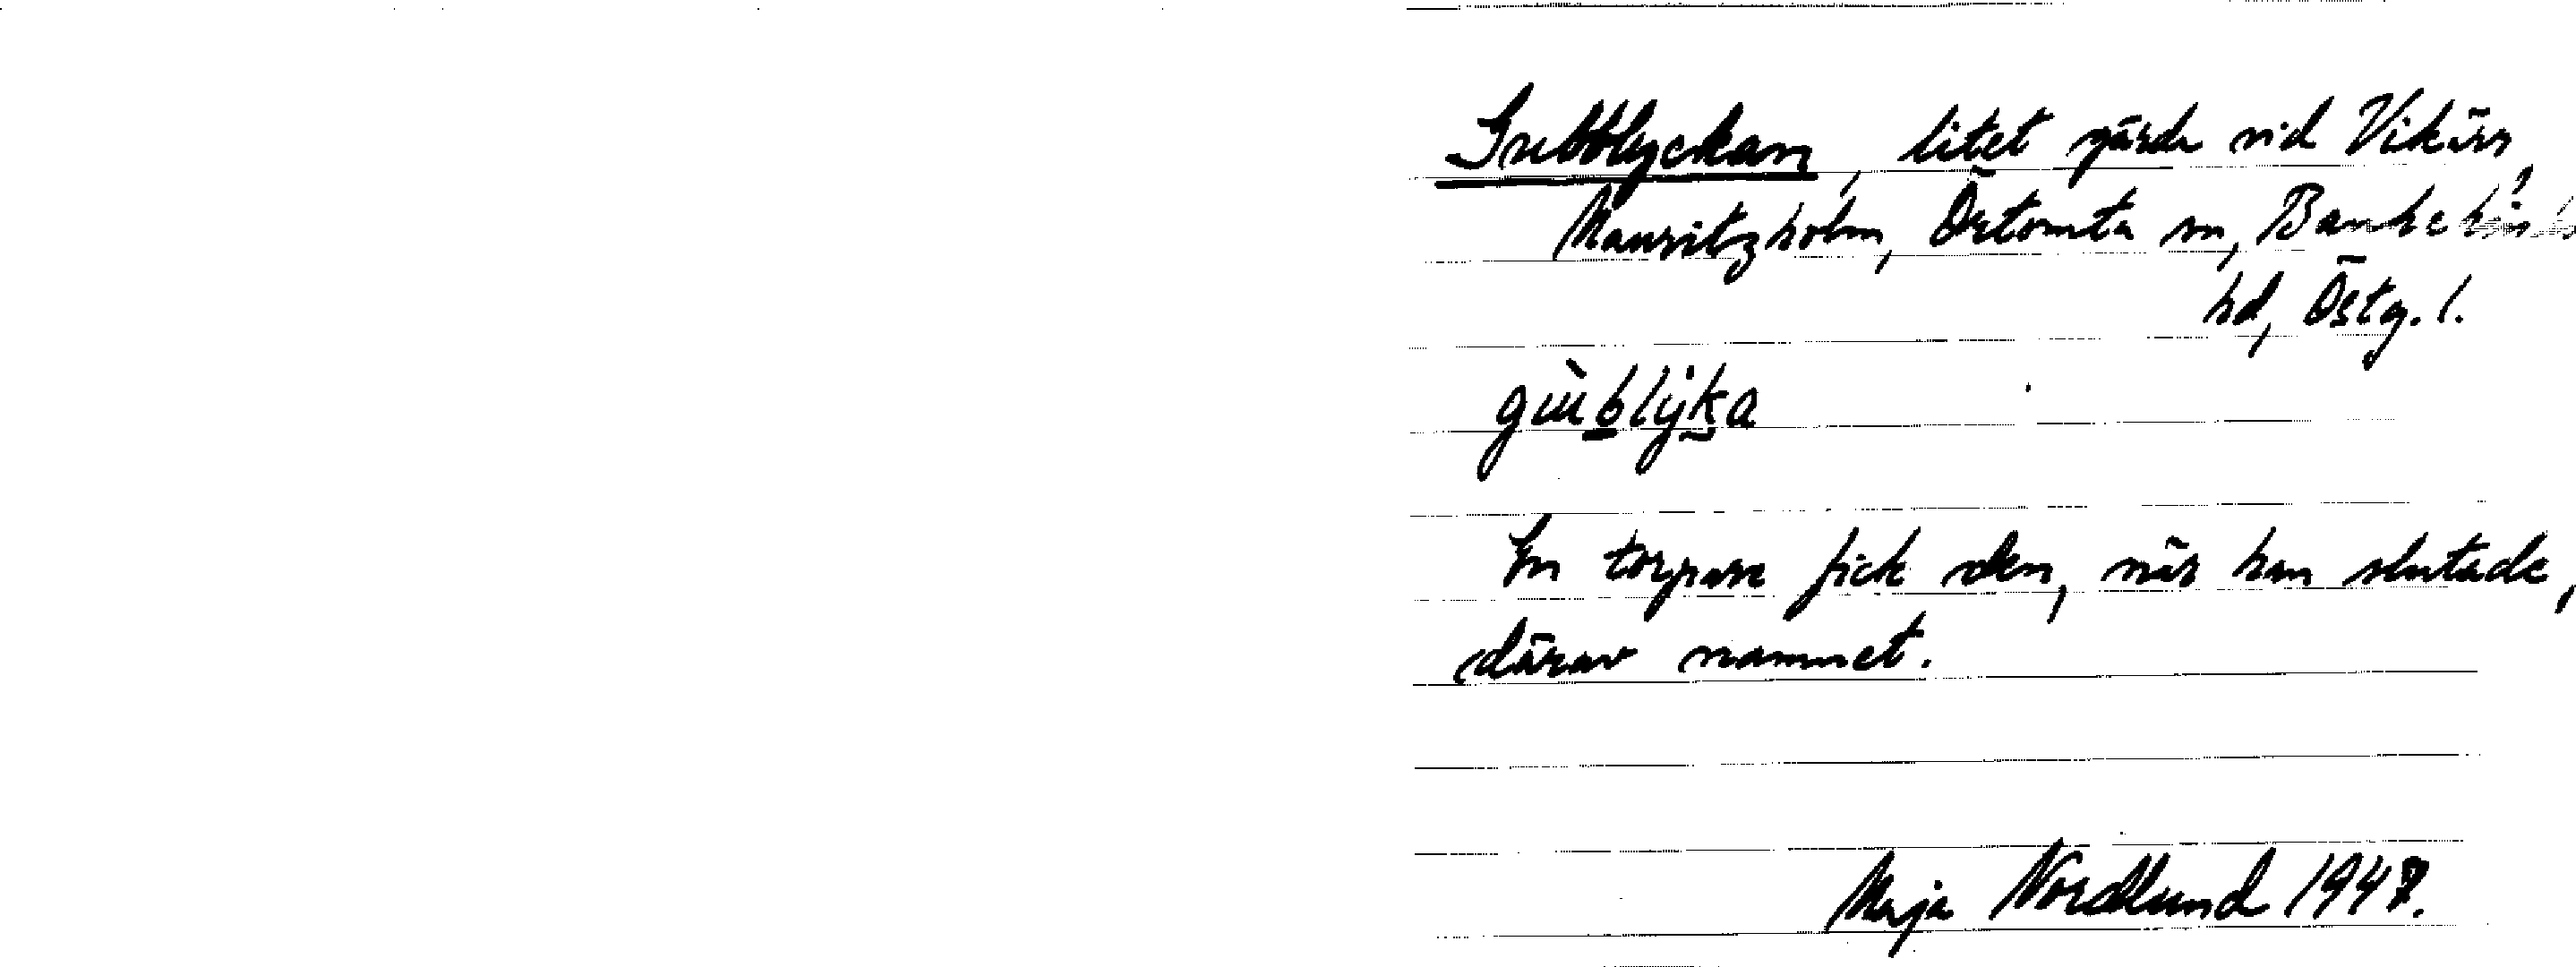 Gubblyckan, litet gärde vid Vikärr,
Mauritzholm, Östomta sn, Bankekinds
hd, Östg. l.
gùblỳka
En torpare fick den, när han slutade,
därav namnet.
Maja Nordlund 1947.